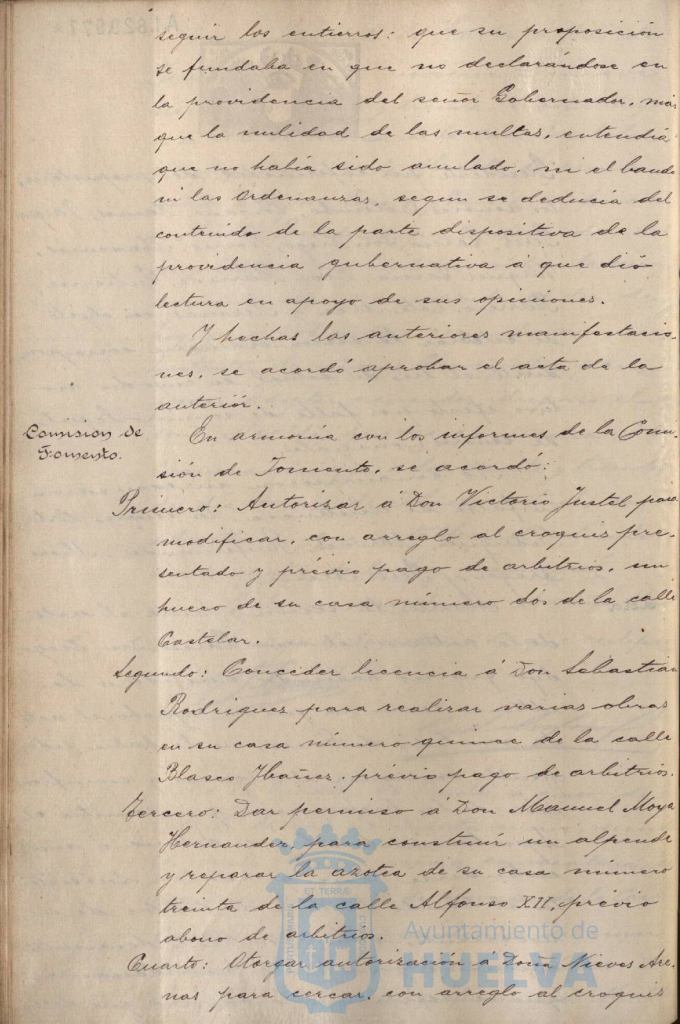 seguir los entierros: que su proposición
se fundaba en que no declarándose en
la providencia del señor Gobernador, más
que la nulidad de las multas, entendia
que no había sido anulado, ni el bando
ni las Ordenanzas, segun se deducia del
contenido de la parte dispositiva de la
providencia gubernativa á que dió
lectura en apoyo de sus opiniones.
Y hechas las anteriores manifestacio-
nes, se acordó aprobar el acta de la
anteriór.
Comision de
Fomento.
En armonia con los informes de la Comi-
sión de Fomento, se acordó:
Primero: Autorizar á Don Victorio Justel para
modificar, con arreglo al croquis pre-
sentado y prévio pago de arbitrios, un
hueco de su casa número dós de la calle
Castelar.
Segundo: Conceder licencia á Don Sebastian
Rodriguez para realizar varias obras
en su casa número quince de la calle
Blasco Ibañez, prévio pago de arbitrios.
Tercero: Dar permiso á Don Manuel Moya
Hernandez, para construir un alpende
y reparar la azotea de su casa número
treinta de la calle Alfonso XII, prévio
abono de arbitrios.
Cuarto: Otorgar autorización a Doña Nieves Are-
nas para cercar, con arreglo al croquis
Ayuntamiento de
HUELVA